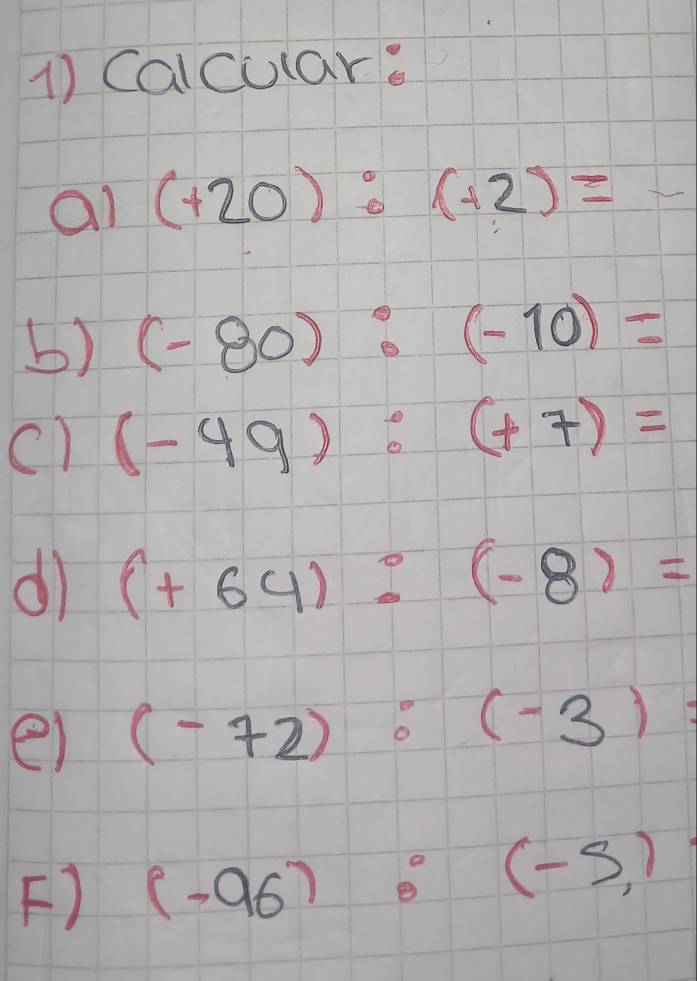 1) Calcular:
a) (+20) : (+2) =
b) (-80) : (-10) =
c) (-49) : (+7) =
d) (+64) : (-8) =
e) (-72) : (-3) =
F) (-96) : (-5)